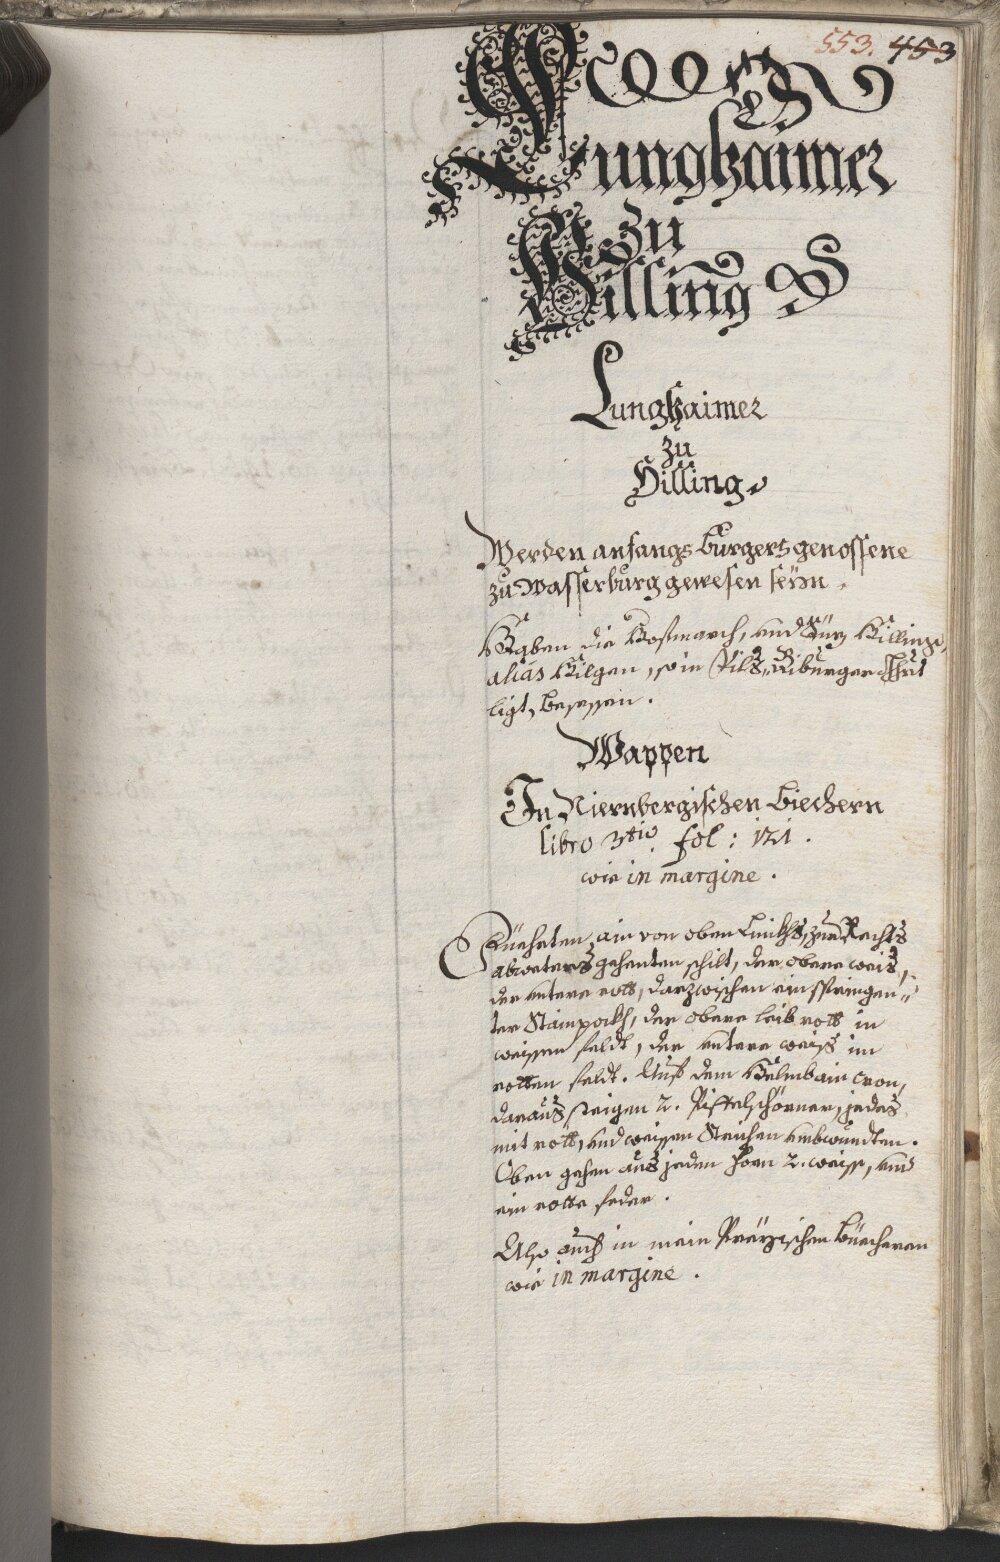 553. 453
Lunghaimer
zu
Hilling
Lunghaimer
zu
Hilling.
Werden anfangs burgersgenossene
zu Wasserburg gewesen seÿn.
Haben die Hofmarch, und Hilling,
alias Hilgen, so in Vils Biburger
ligt, besessen.
Wappen
In Niernbergischen biechern
libro 3tio. fol: 121.
wie in margine.
Füehrten ain von oben Linkhs, zum Rechts
abwerts gehenten schilt, der obere weis,
der untere rott, darzwischen ein springen„
ter Stainpockh, der obere leib rott in
weissen feldt, der untere weiß im
rotten feldt. Auf dem Helmb ain Cron,
daraus steigen 2. Pifflshörner, jedes
mit rott, und weissen Strichen umbwundten.
Oben gehen aus jeden Horn 2. weisse, und
ein rotte feder.
Also auch in mein Preÿsischen büecheren
wie in margine.